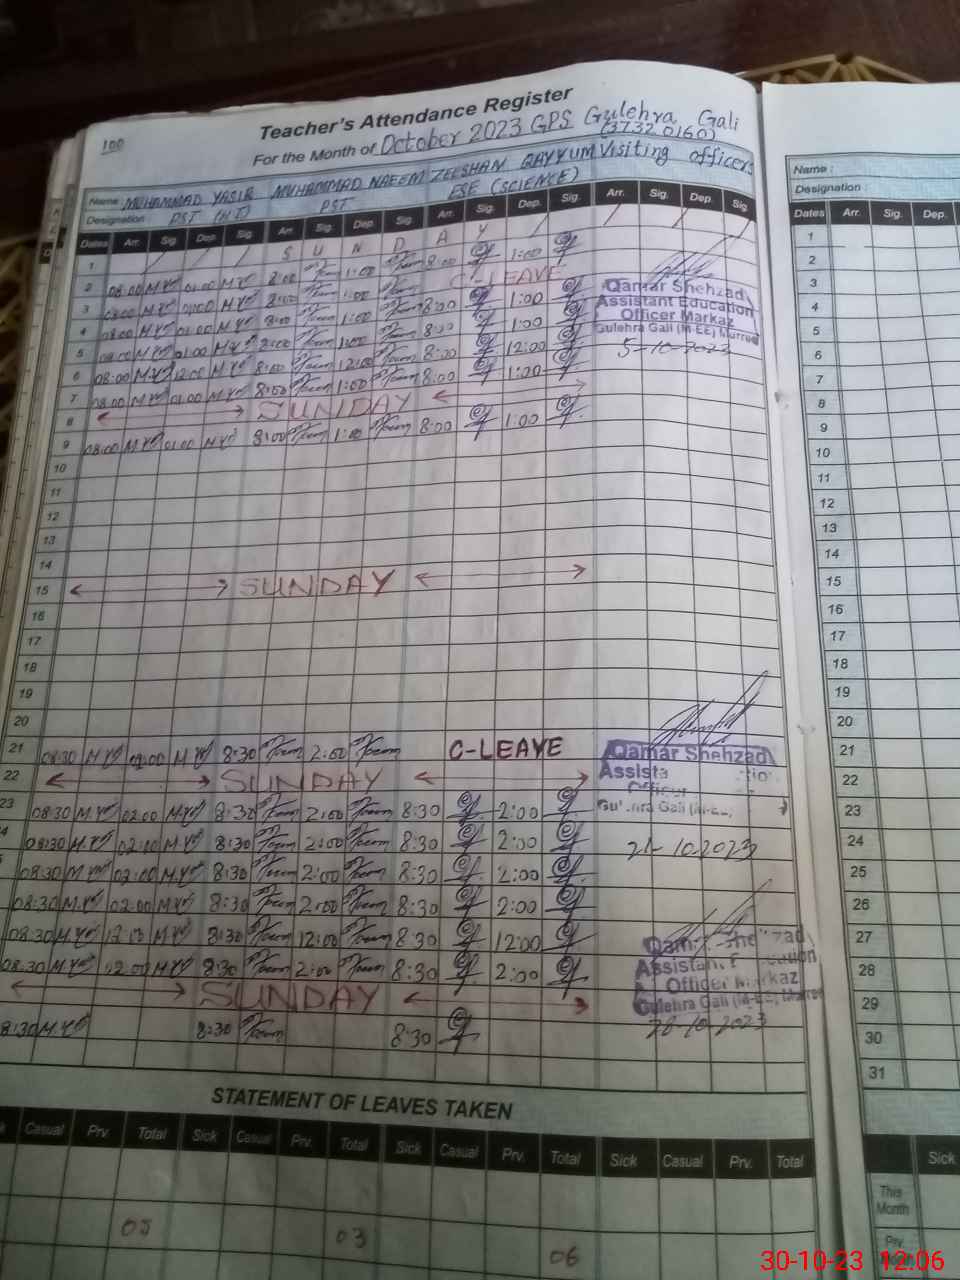 100
Teacher's Attendance Register
For the Month of October 2023 GPS Gulehra Gali
(37320160)
Name MUHAMMAD YASIR MUHAMMAD NAEEM ZEESHAN QAYYUM Visiting officers
Designation : PST (H.T) PST ESE (SCIENCE)
Dates Arr. Sig. Dep. Sig. Arr. Sig. Dep. Sig. Arr. Sig. Dep. Sig. Arr. Sig. Dep. Sig
1 S U N D A Y
2 08:00 M.Y 01:00 M.Y 8:00 1:00 8:00 1:00
3 08:00 M.Y 01:00 M.Y 8:00 1:00 C-LEAVE
4 08:00 M.Y 01:00 M.Y 8:00 1:00 8:00 1:00
5 08:00 M.Y 01:00 M.Y 8:00 1:00 8:00 1:00
6 08:00 M.Y 12:00 M.Y 8:00 12:00 8:00 12:00
7 08:00 M.Y 01:00 M.Y 8:00 1:00 8:00 1:00
8 SUNDAY
9 08:00 M.Y 01:00 M.Y 8:00 1:00 8:00 1:00
10
11
12
13
14
15 SUNDAY
16
17
18
19
20
21 08:30 M.Y 02:00 M.Y 8:30 2:00 C-LEAVE
22 SUNDAY
23 08:30 M.Y 02:00 M.Y 8:30 2:00 8:30 2:00
08:30 M.Y 02:00 M.Y 8:30 2:00 8:30 2:00
08:30 M.Y 02:00 M.Y 8:30 2:00 8:30 2:00
08:30 M.Y 02:00 M.Y 8:30 2:00 8:30 2:00
08:30 M.Y 12:00 M.Y 8:30 12:00 8:30 12:00
08:30 M.Y 02:00 M.Y 8:30 2:00 8:30 2:00
SUNDAY
8:30 M.Y 8:30 8:30
Qamar Shehzad
Assistant Education
Officer Markaz
Gulehra Gali (M-EE) Murree
5-10-2023
Qamar Shehzad
Officer
21-10-2023
Officer Markaz
Gulehra Gali (M-EE) Murree
28-10-2023
STATEMENT OF LEAVES TAKEN
Casual Prv. Total Sick Casual Prv. Total Sick Casual Prv. Total Sick Casual Prv. Total
05 03 06
Name :
Designation :
Dates Arr. Sig. Dep.
1
2
3
4
5
6
7
8
9
10
11
12
13
14
15
16
17
18
19
20
21
22
23
24
25
26
27
28
29
30
31
Sick
This Month
30-10-23 12:06